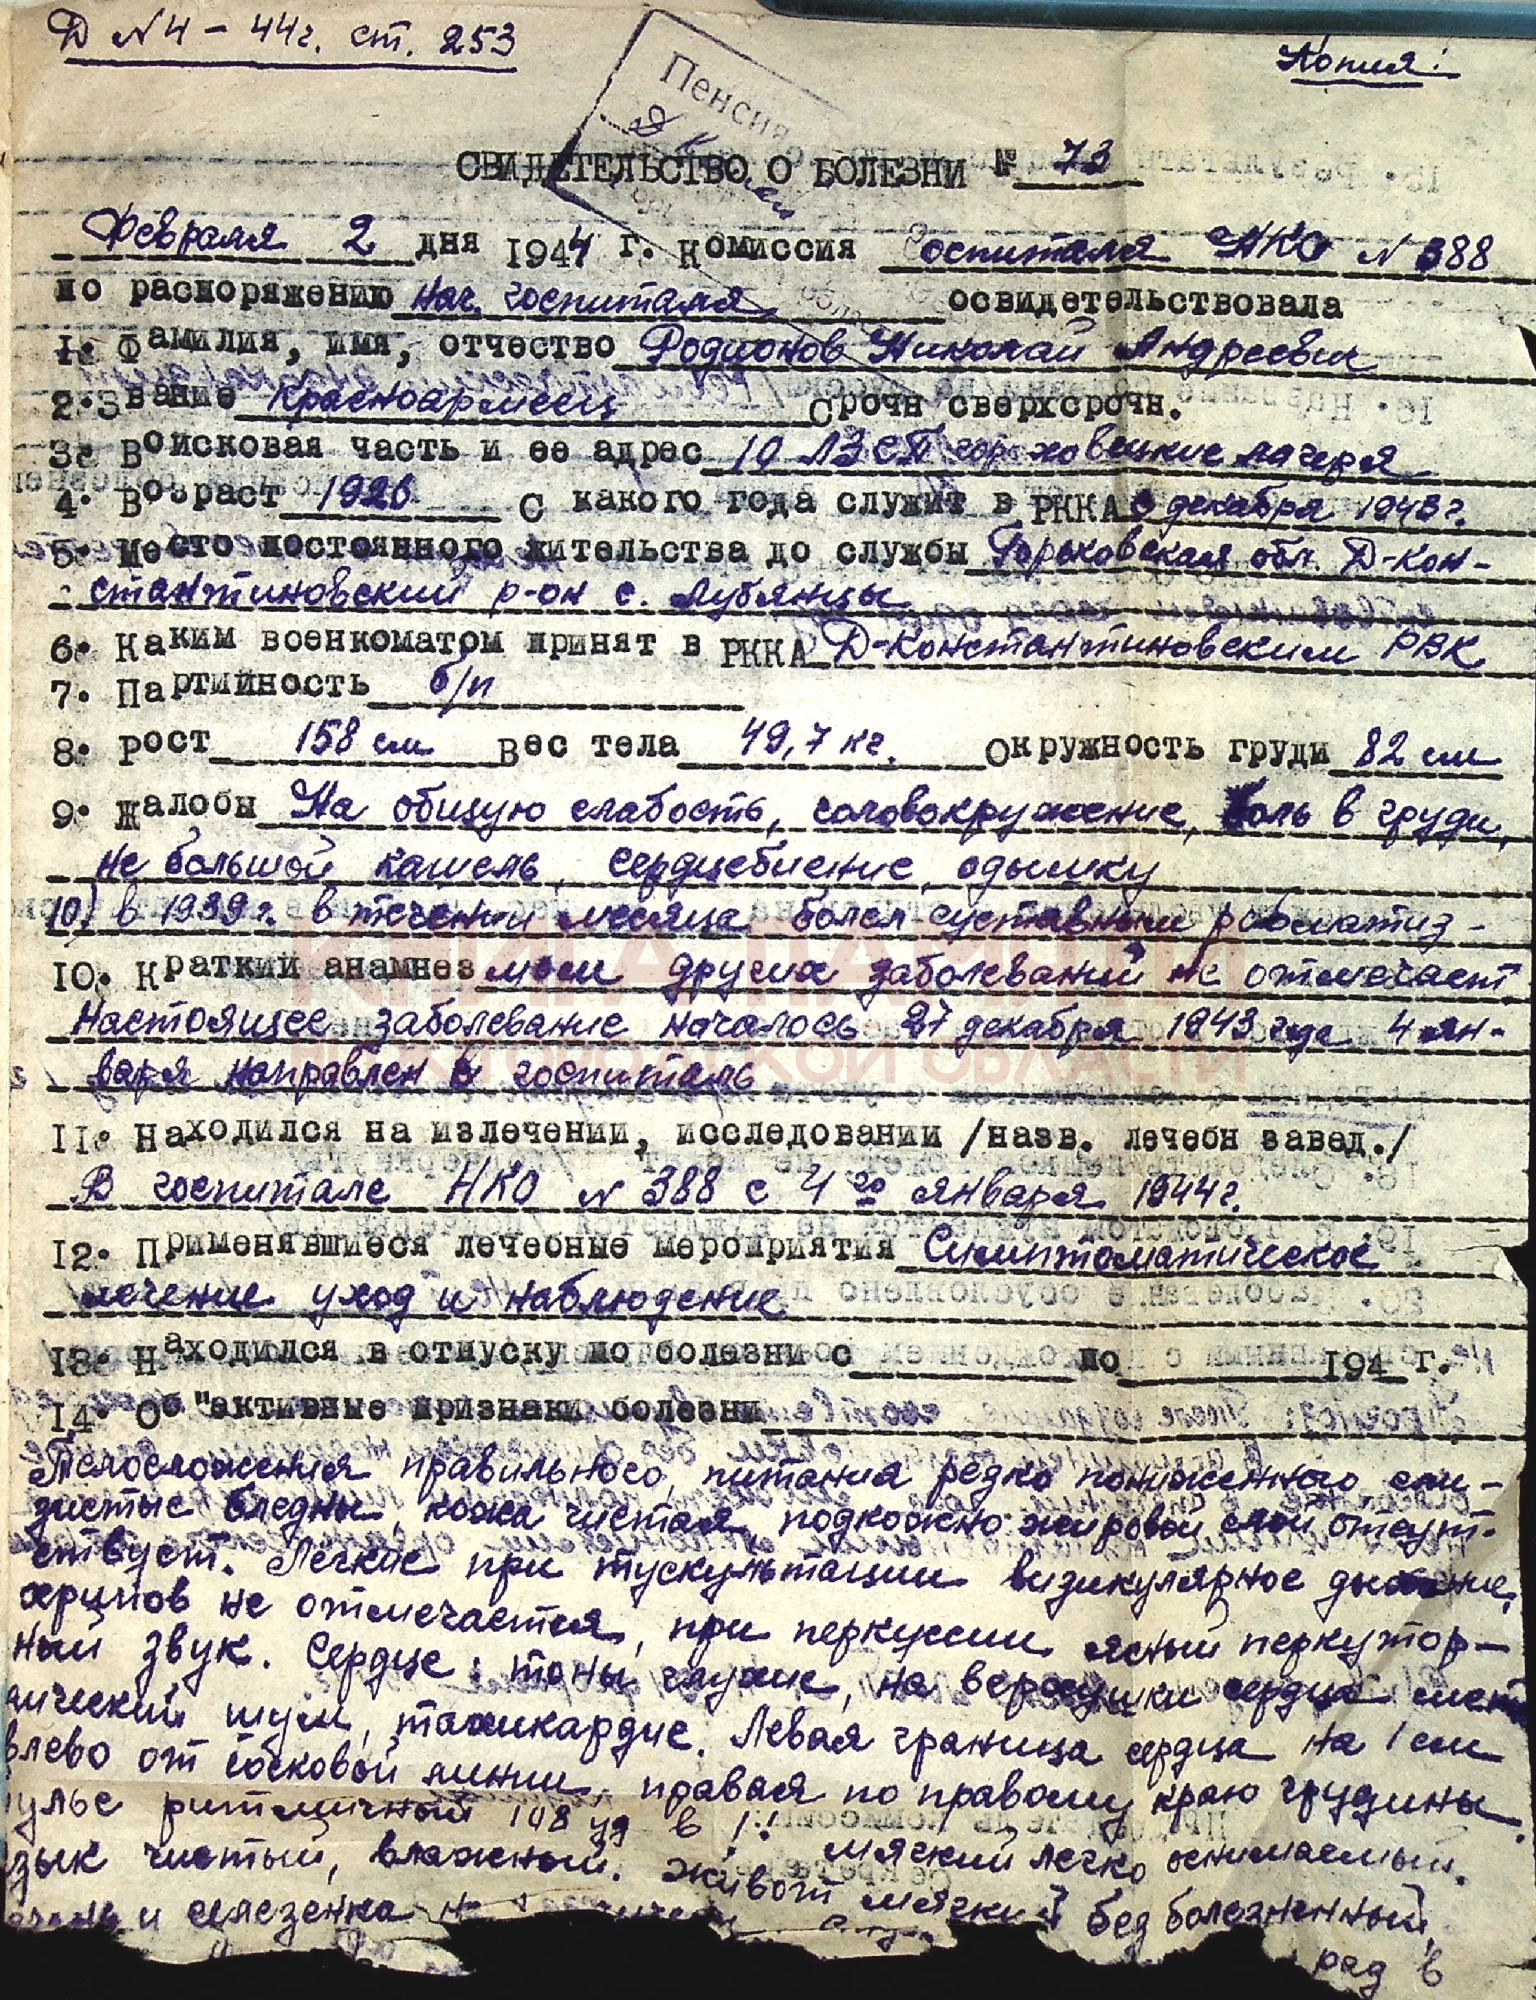 Д N 4 – 44г. ст. 253
Копия:
Пенсия
СВИДЕТЕЛЬСТВО О БОЛЕЗНИ № 73
Февраля 2 дня 1944 г. Комиссия Госпиталя НКО N 388
по распоряжению нач. госпиталя освидетельствовала
1. Фамилия, имя, отчество Родионов Николай Андреевич
2. Звание Красноармеец Срочн сверхсрочн.
3. Войсковая часть и ее адрес 10 ЛЗСП гороховецкие лагеря
4. Возраст 1926 С какого года служит в РККА с декабря 1943 г.
5. Место постоянного жительства до службы Горьковская обл. Д-Кон-
стантиновский р-он с. Лубянцы
6. Каким военкоматом принят в РККА Д-Константиновским РВК
7. Партийность б/п
8. Рост 158 см Вес тела 49,7 кг. Окружность груди 82 см
9. Жалобы На общую слабость, головокружение, боль в груди,
не большой кашель, сердцебиение, одышку
10) в 1939 г. в течении месяца болел суставным ревматиз-
10. Краткий анамнез мом других заболеваний не отмечает
Настоящее заболевание началось 27 декабря 1943 года 4 ян-
варя направлен в госпиталь
КНИГА ПАМЯТИ
НИЖЕГОРОДСКОЙ ОБЛАСТИ
11. Находился на излечении, исследовании /назв. лечебн завед./
В госпитале НКО N 388 с 4 го января 1944 г.
12. Применявшиеся лечебные мероприятия Симптоматическое
лечение уход и наблюдение
13. Находился в отпуску по болезни с по 194 г.
14. Об"активные признаки болезни
Телосложения правильного, питания резко пониженного сли-
зистые бледны, кожа чистая, подкожно жировой слой отсут-
ствует. Легкие при тускультации визикулярное дыхание,
хрипов не отмечается, при перкуссии ясный перкутор-
ный звук. Сердце: тоны глухие, на верхушки сердца сист
лический шум, тахикардие. Левая граница сердца на 1 см
влево от сосковой линии, правая по правому краю грудины.
ульс ритмичный 108 уд в 1! мягкий легко сжимаемый.
зык чистый, влажный. Живот мягкий без болезненный,
ечень и селезенка
рад в